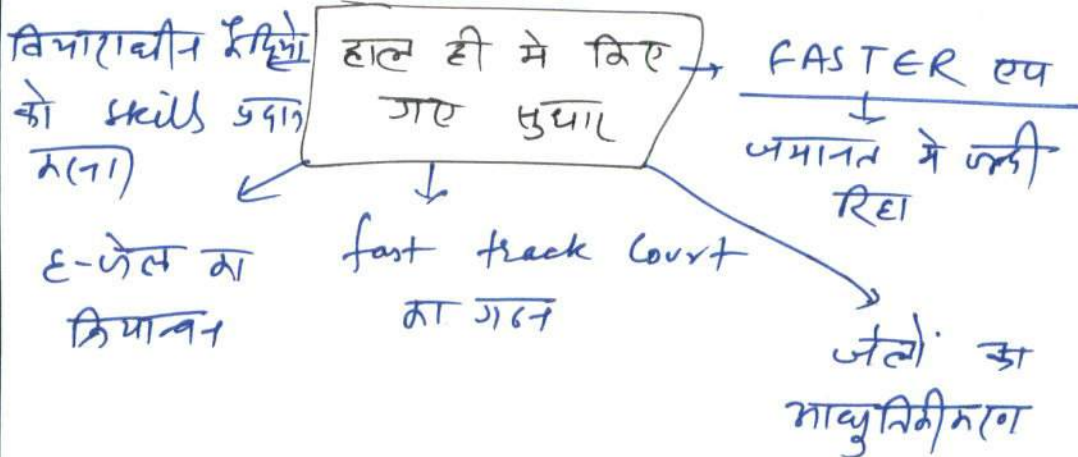 विचाराधीन कैदियों
को skills प्रदान
करना
हाल ही मे किए
गए सुधार
FASTER एप
जमानत मे जल्दी
रिहा
ई-जेल का
क्रियान्वन
fast track Court
का गठन
जेलों का
आधुनिकीकरण